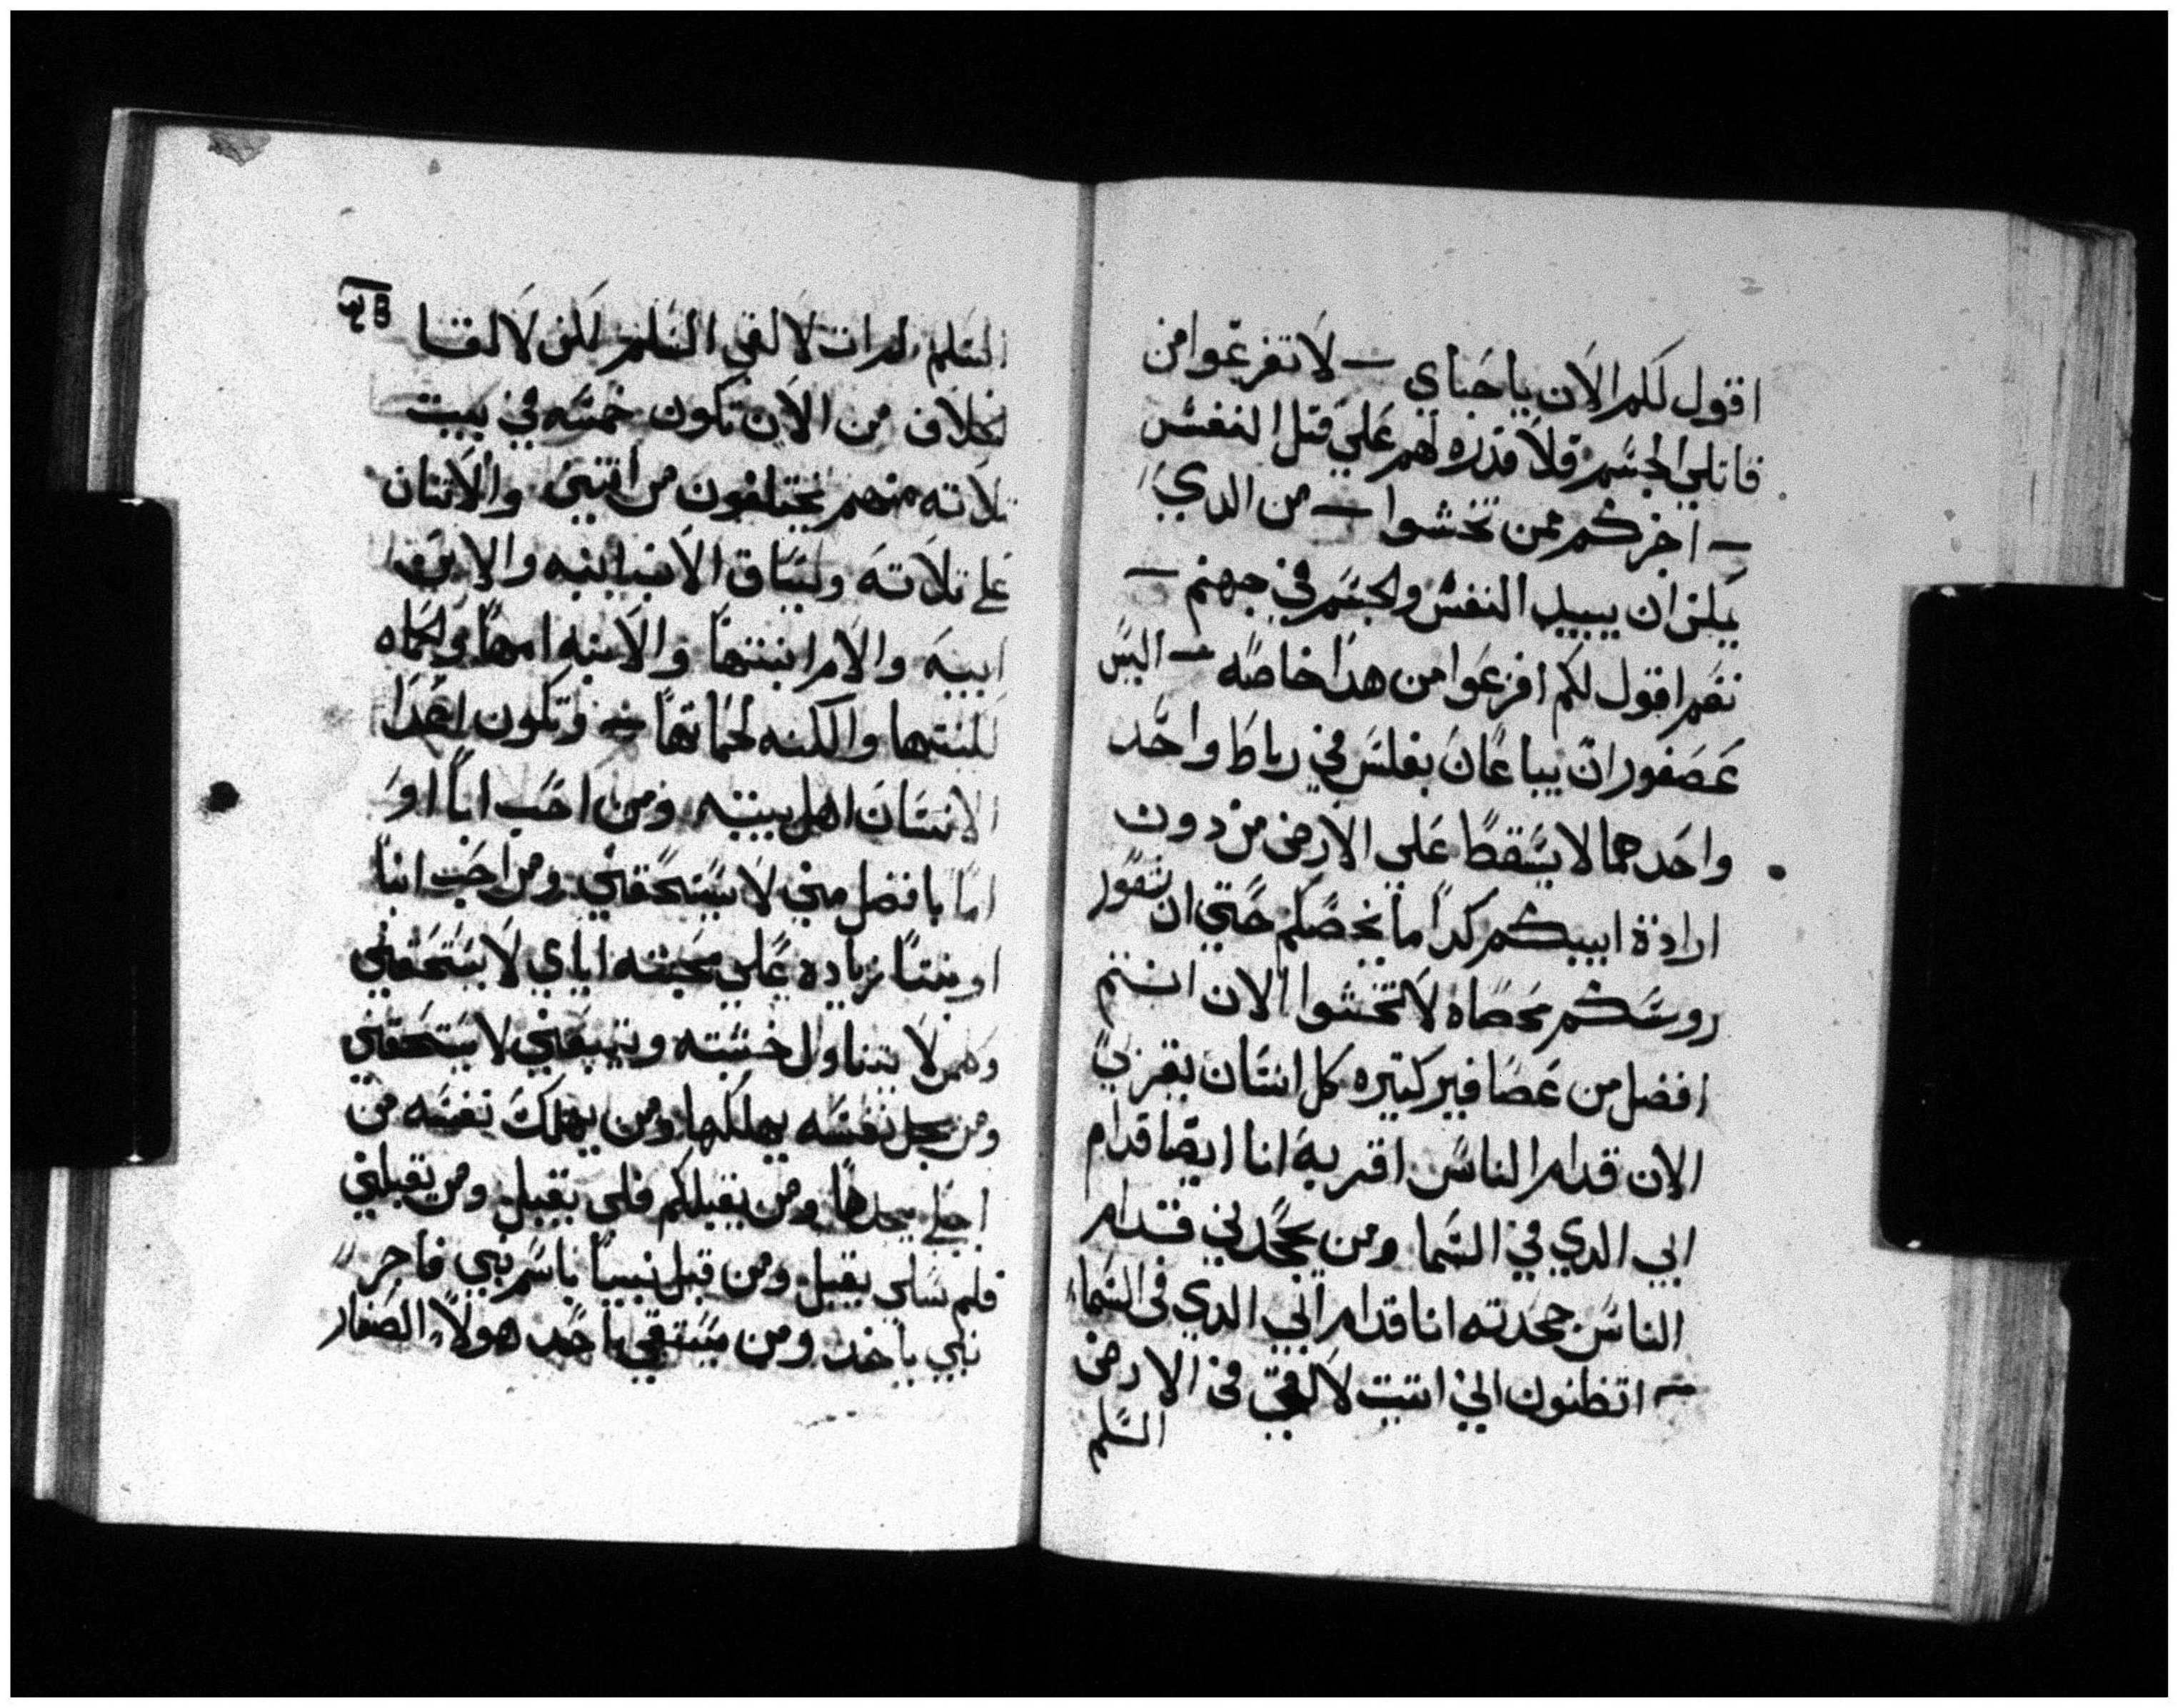 اقول لكم الان يا حباي – لا تفزعوا من
قاتلي الجسم فلا قدره لهم علي قتل النفس
– اخركم ممن تخشوا – من الدي
يمكن ان يبيد النفس والجسم في جهنم –
نعم اقول لكم افزعوا من هدا خاصه – اليس
عصفوران يباعان بفلس في رباط واحد
واحدهما لا يسقط علي الارض من دون
ارادة ابيكم كدا ما يخصكم حتي ان شعور
روسكم محصاه لا تخشوا الان انتم
افضل من عصافير كتيره كل انسان يقر بي
الان قدام الناس اقر به انا ايضا قدام
ابي الدي في السما ومن يجحدني قدام
الناس جحدته انا قدام ابي الدي في السما
– اتظنون اني اتيت لالقي في الارض
السلم
السلم لم ات لالقي السلم لكن لالقا
لخلاف من الان تكون خمسه في بيت
تلاته منهم يختلفون من اتنين والاتنان
علي تلاته وليساق الاب ابنه والابن
ابيه والامرا بنتها والابنه امها والحماه
لكنتها والكنه لحماتها – وتكون اعدا
الانسان اهل بيته ومن احب ابا او
اما بافضل مني لا يستحقني ومن احب ابنا
او بنتا زياده علي محبته اياي لا يستحقني
وكلمن لا يتناول خشبته ويتبعني لا يستحقني
ومن يجد نفسه يهلكها ومن يهلك نفسه من
اجلي يجدها ومن يقبلكم فلي يقبل ومن يقبلني
فلمرسلي يقبل ومن قبل نبيا باسم نبي فاجر
نبي ياخد ومن يسقي احد هولا الصغار